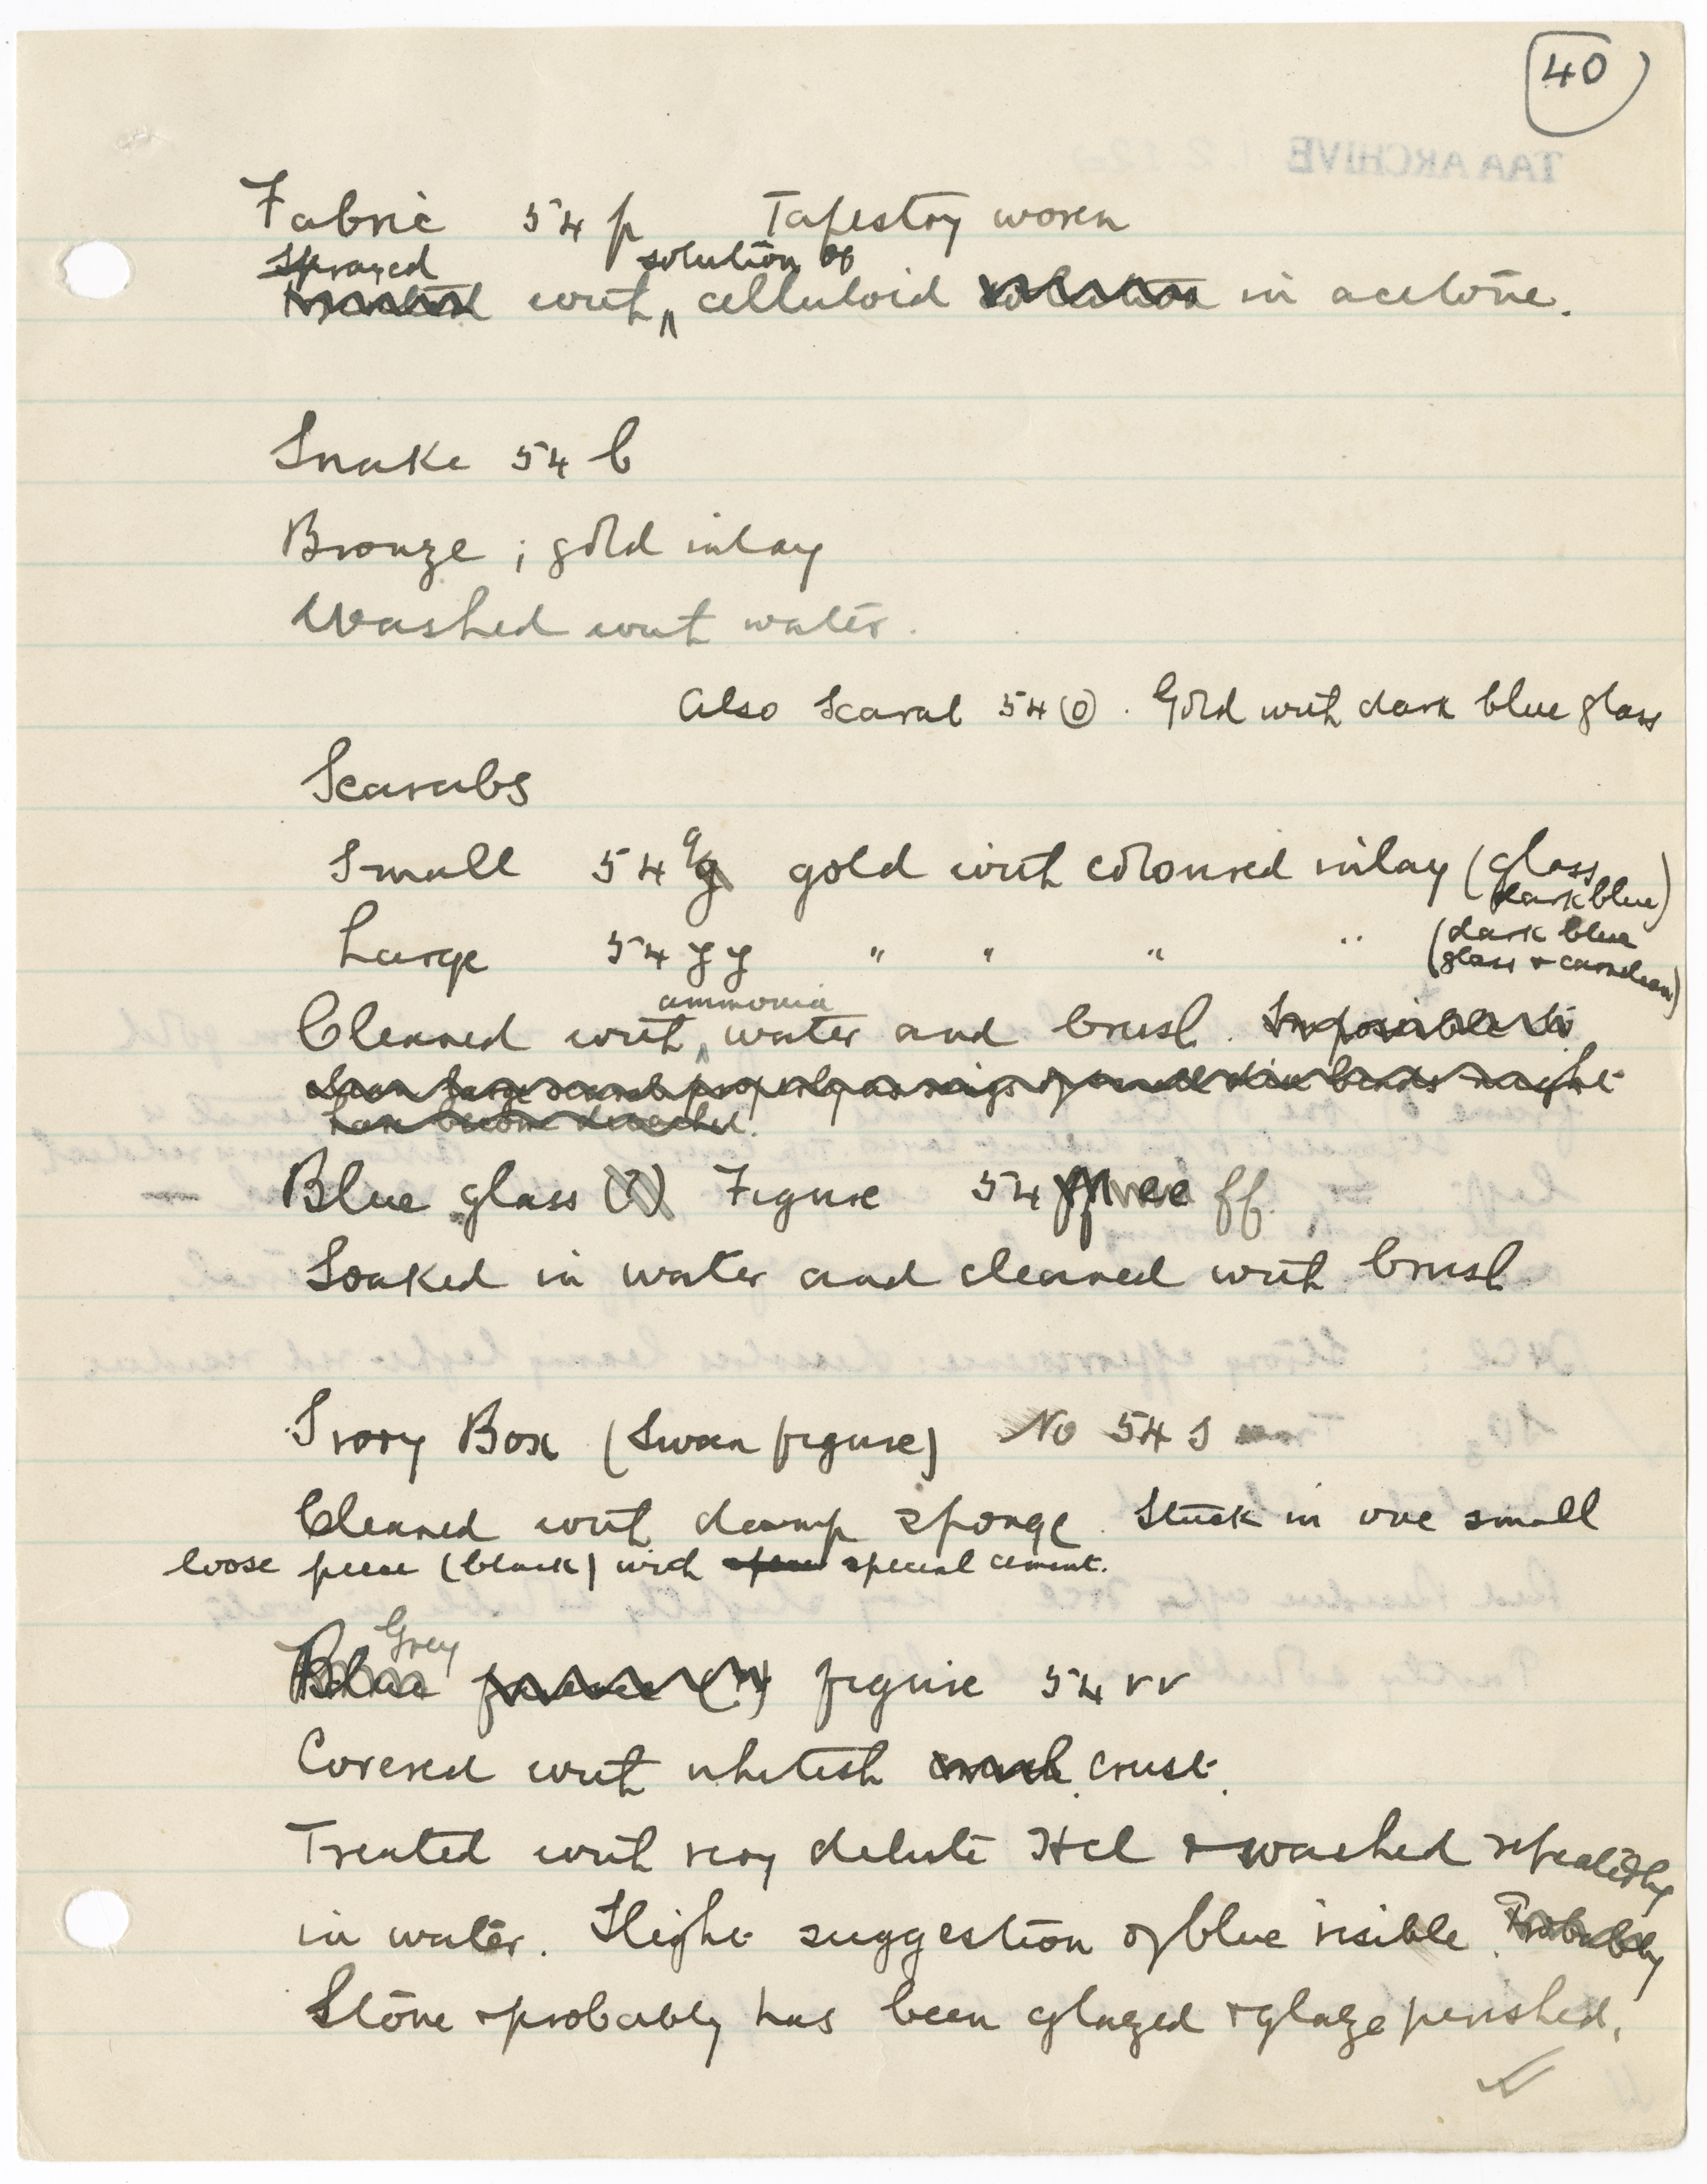 40
TAA ARCHIVE
Fabric 54 p Tapestry woven
Sprayed solution of
with celluloid solution in acetone.
Snake 54 b
Bronze ; gold inlay
Washed with water.
Also Scarab 54 (o). Gold with dark blue glass
Scarabs
Small 54 g gold with coloured inlay (glass
dark blue)
Large 54 yy " " " " (dark blue
glass & carnelian)
ammonia
Cleaned with water and brush. Impossible to
clean large scarab properly as rings of small beads might
have become detached.
Blue glass (?) Figure 54 ee ff.
Soaked in water and cleaned with brush
Ivory Box (Swan figure) No 54 s
Cleaned with damp sponge. Stuck in one small
loose piece (black) with special cement.
Grey
Blue faience (?) figure 54 vv
Covered with whitish crust.
Treated with very dilute HCl & washed repeatedly
in water. Slight suggestion of blue visible. Probably
Stone & probably has been glazed & glaze perished.